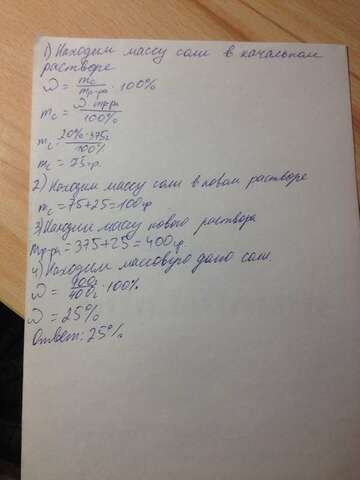 1) Находим массу соли в начальном
растворе
ω = mс/mр-ра · 100%
mс = ω·mр-ра/100%
mс = 20%·375г/100%
mс = 75гр.
2) Находим массу соли в новом растворе
mс = 75+25=100гр
3) Находим массу нового раствора
mр-ра = 375+25=400гр.
4) Находим массовую долю соли.
ω = 100г/400г · 100%
ω = 25%
Ответ: 25%